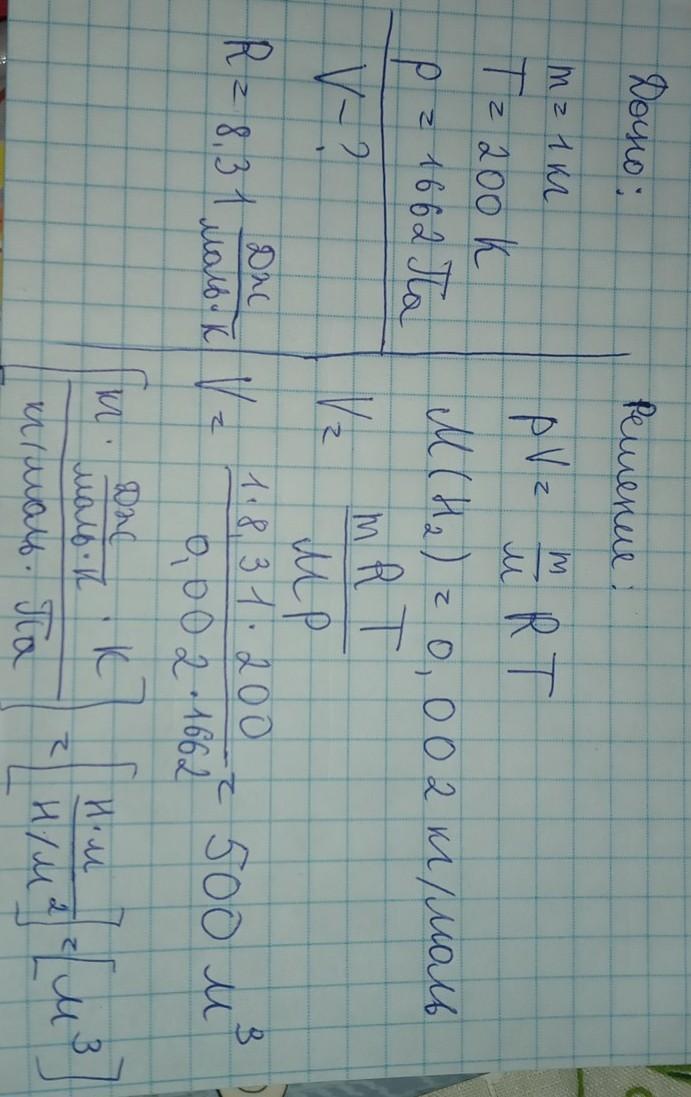 Дано:
m = 1 кг
T = 200 K
p = 1662 Па
V - ?
R = 8,31 Дж/моль·К
Решение:
pV = m/M RT
M(H₂) = 0,002 кг/моль
V = mRT/Mp
V = 1·8,31·200/0,002·1662 = 500 м³
[кг · Дж/моль·К · К / кг/моль · Па] = [Н·м / Н/м²] = [м³]